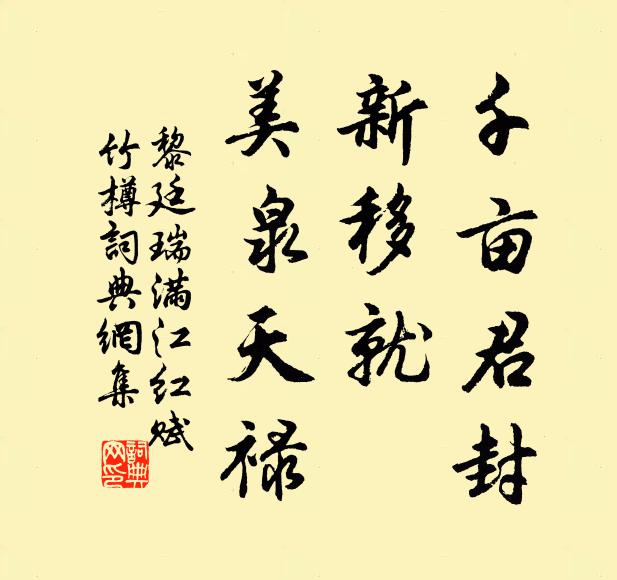 千亩君封
新移就
美泉天禄
黎廷瑞满江红赋
竹樽詞典網集
詞典网印